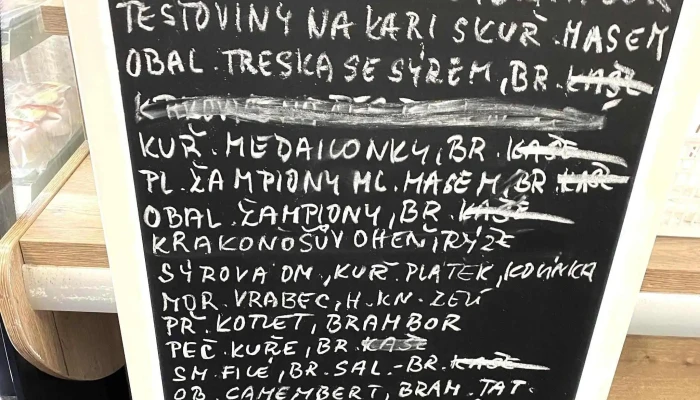 TĚSTOVINY NA KARI S KUŘ. MASEM
OBAL. TRESKA SE SÝREM, BR. KAŠE
KUŘ. MEDAILONKY, BR. KAŠE
PL. ŽAMPIONY ML. MASEM, BR. KAŠE
OBAL. ŽAMPIONY, BR. KAŠE
KRAKONOŠŮV OHEŇ, RÝŽE
SÝROVÁ OM., KUŘ. PLÁTEK,
MOR. VRABEC, H. KN. ZELÍ
PŘ. KOTLET, BRAMBOR
PEČ. KUŘE, BR. KAŠE
SM. FILÉ, BR. SAL. - BR. KAŠE
OB. CAMEMBERT, BRAM. TAT.